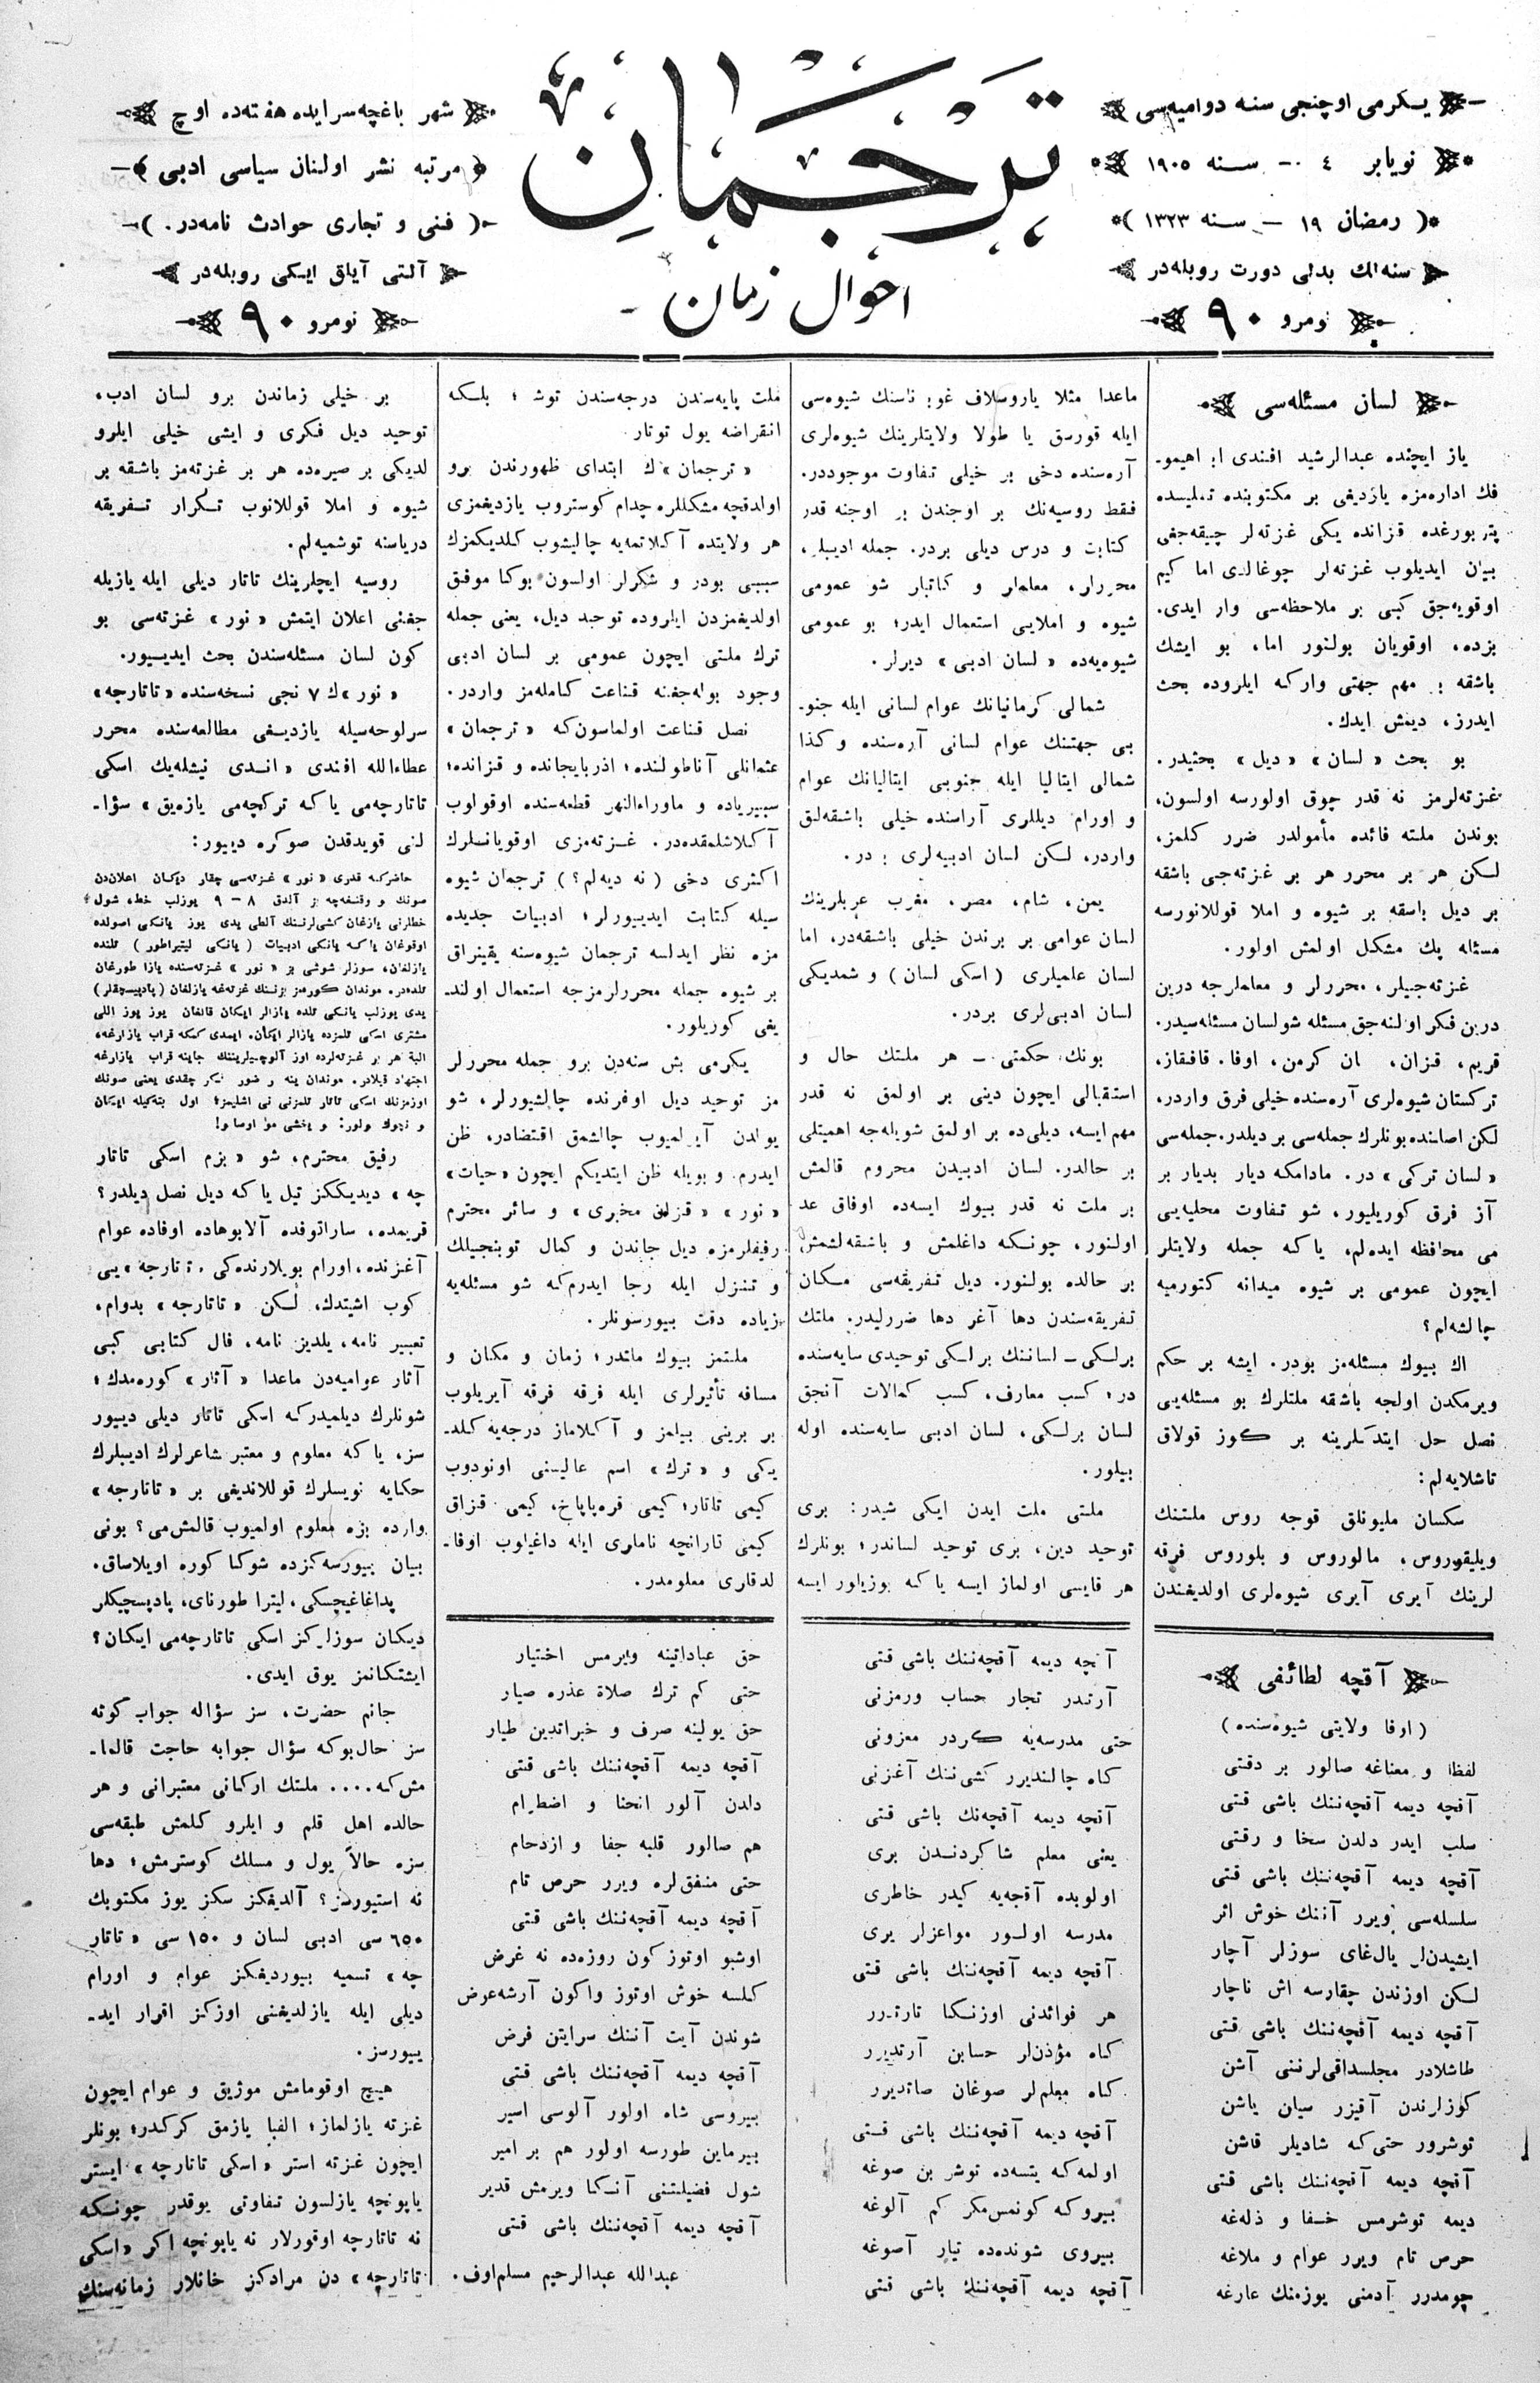 ترجمان
احوال زمان
يكرمى اوچنجى سنه دواميه‌سى
نويابر ٤ — سنه ١٩٠٥
( رمضان ١٩ — سنه ١٣٢٣ )
سنه‌لك بدلى دورت روبله‌در
نومرو ٩٠
شهر باغچه‌سرايده هفته‌ده اوچ
مرتبه نشر اولنان سياسى ادبى
( فنى و تجارى حوادث نامه‌در. )
آلتى آياق ايكى روبله‌در
نومرو ٩٠
لسان مسئله‌سى
ياز ايچنده عبدالرشيد افندى ابراهيمو-
فك اداره‌مزه يازديغى بر مكتوبنده تفليسده
پتربورغده قزانده يكى غزته‌لر چيقه‌جغى
بيان ايديلوب غزته‌لر چوغالدى اما كيم
اوقويه‌جق كبى بر ملاحظه‌سى وار ايدى.
بزده، اوقويان بولنور اما، بو ايشك
باشقه بر مهم جهتى واركه ايلروده بحث
ايدرز، ديمش ايدك.
بو بحث «لسان» «ديل» بحثيدر.
غزته‌لرمز نه قدر چوق اولورسه اولسون،
بوندن ملته فائده مأمولدر ضرر كلمز،
لكن هر بر محرر هر بر غزته‌جى باشقه
بر ديل باشقه بر شيوه و املا قوللانورسه
مسئله پك مشكل اولمش اولور.
غزته‌جيلر، محررلر و معلملرجه درين
درين فكر اولنه‌جق مسئله شو لسان مسئله‌سيدر.
قريم، قزان، خان كرمن، اوفا، قافقاز،
تركستان شيوه‌لرى آره‌سنده خيلى فرق واردر،
لكن اصلنده بونلرك جمله‌سى بر ديلدر. جمله‌سى
«لسان تركى» در. مادامكه ديار بديار بر
آز فرق كوريليور، شو تفاوت محليه‌يى
مى محافظه ايده‌لم، ياكه جمله ولايتلر
ايچون عمومى بر شيوه ميدانه كتورميه
چالشه‌لم؟
اك بيوك مسئله‌مز بودر. ايشه بر حكم
ويرمكدن اولجه باشقه ملتلرك بو مسئله‌يى
نصل حل ايتدكلرينه بر كوز قولاق
تاشلايه‌لم:
سكسان مليونلق قوجه روس ملتنك
ويليقوروس، مالوروس و بلوروس فرقه
لرينك آيرى آيرى شيوه‌لرى اولديغندن
ماعدا مثلا ياروسلاف غوبرناسنك شيوه‌سى
ايله قورسق يا طولا ولايتلرينك شيوه‌لرى
آره‌سنده دخى بر خيلى تفاوت موجوددر.
فقط روسيه‌نك بر اوجندن بر اوجنه قدر
كتابت و درس ديلى بردر. جمله اديبلر،
محررلر، معلملر و كاتبلر شو عمومى
شيوه و املايى استعمال ايدر؛ بو عمومى
شيوه‌يه‌ده «لسان ادبى» ديرلر.
شمالى كرمانيانك عوام لسانى ايله جنو-
بى جهتنك عوام لسانى آره‌سنده وكذا
شمالى ايتاليا ايله جنوبى ايتاليانك عوام
و اورام ديللرى آراسنده خيلى باشقه‌لق
واردر، لكن لسان ادبيه‌لرى بردر.
يمن، شام، مصر، مغرب عربلرينك
لسان عوامى بر برندن خيلى باشقه‌در، اما
لسان علميلرى (اسكى لسان) و شمديكى
لسان ادبى‌لرى بردر.
بونك حكمتى — هر ملتك حال و
استقبالى ايچون دينى بر اولمق نه قدر
مهم ايسه، ديلى‌ده بر اولمق شويله‌جه اهميتلى
بر حالدر. لسان ادبيدن محروم قالمش
بر ملت نه قدر بيوك ايسه‌ده اوفاق عد
اولنور، چونكه داغلمش و باشقه‌لشمش
بر حالده بولنور. ديل تفريقه‌سى مكان
تفريقه‌سندن دها آغر دها ضررليدر. ملتك
برلكى — لساننك برلكى توحيدى سايه‌سنده
در؛ كسب معارف، كسب كمالات آنجق
لسان برلكى، لسان ادبى سايه‌سنده اوله
بيلور.
ملتى ملت ايدن ايكى شيدر: برى
توحيد دين، برى توحيد لساندر؛ بونلرك
هر قايسى اولماز ايسه ياكه بوزيلور ايسه
ملت پايه‌سندن درجه‌سندن توشر؛ بلكه
انقراضه يول توتار.
«ترجمان»ك ابتداى ظهورندن برو
اولدقچه مشكللره چدام كوستروب يازديغمزى
هر ولايتده آكلاتمه‌يه چاليشوب كلديكمزك
سببى بودر و شكرلر اولسون بوكا موفق
اولديغمزدن ايلروده توحيد ديل، يعنى جمله
ترك ملتى ايچون عمومى بر لسان ادبى
وجود بوله‌جغنه قناعت كامله‌مز واردر.
نصل قناعت اولماسون‌كه «ترجمان»
عثمانلى آناطولنده؛ اذربايجانده و قزانده؛
سيبرياده و ماوراءالنهر قطعه‌سنده اوقولوب
آكلاشلمقده‌در. غزته‌مزى اوقويانلرك
اكثرى دخى (نه ديه‌لم؟) ترجمان شيوه
سيله كتابت ايدييورلر؛ ادبيات جديده
مزه نظر ايدلسه ترجمان شيوه‌سنه يقينراق
بر شيوه جمله محررلرمزجه استعمال اولند-
يغى كوريلور.
يكرمى بش سنه‌دن برو جمله محررلر
مز توحيد ديل اوغرنده چالشيورلر، شو
يولدن آيرلميوب چالشمق اقتضادر، ظن
ايدرم. و بويله ظن ايتديكم ايچون «حيات»
«نور» «قزان مخبرى» و سائر محترم
رفيقلرمزه ديل جاندن و كمال توبنجيلك
و تنزل ايله رجا ايدرم‌كه شو مسئله‌يه
زياده دقت بيورسونلر.
ملتمز بيوك ملتدر؛ زمان و مكان و
مسافه تأثيرلرى ايله فرقه فرقه آيريلوب
بر برينى بيلمز و آكلاماز درجه‌يه كلد-
يكى و «ترك» اسم عاليسنى اونودوب
كيمى تاتار؛ كيمى قره‌پاپاخ، كيمى قزاق
كيمى تارانچه ناملرى ايله داغيلوب اوفا-
لدقلرى معلومدر.
بر خيلى زماندن برو لسان ادب،
توحيد ديل فكرى و ايشى خيلى ايلرو
لديكى بر صيره‌ده هر بر غزته‌مز باشقه بر
شيوه و املا قوللانوب تكرار تفريقه
درياسنه توشميه‌لم.
روسيه ايچلرينك تاتار ديلى ايله يازيله
جغنى اعلان ايتمش «نور» غزته‌سى بو
كون لسان مسئله‌سندن بحث ايدييور.
«نور»ك ٧ نجى نسخه‌سنده «تاتارچه»
سرلوحه‌سيله يازديغى مطالعه‌سنده محرر
عطاءالله افندى «اندى نيشله‌يك اسكى
تاتارچه‌مى ياكه تركچه‌مى يازه‌يق» سؤا-
لنى قويدقدن صوكره دييور:
حاضركه قدرى «نور» غزته‌سى چقار ديكان اعلان‌دن
صونك و وقتغه‌چه بز آلدق ٨ - ٩ يوزلب خط، شول
خطلرنى يازغان كشى‌لرننك آلطى يدى يوز يانكى اصولده
اوقوغان ياكه يانكى ادبيات (يانكى ليتيراطور) تلنده
يازلغان، سوزلر شوشى بز «نور» غزته‌سنده يازا طورغان
تلده‌در. موندان كورمز بزننك غزته‌غه يازلغان (پادپيسچقلر)
يدى يوزلب يانكى تلده يازالر ايكان قالغان يوز يوز اللى
مشترى اسكى تلمزده يازالر ايكان. ايمدى كمكه قراب يازارغه،
البة هر بر غزته‌لرده اوز آلوچيلريننك جاينه قراب يازارغه
اجتهاد قيلادر.
رفيق محترم، شو «بزم اسكى تاتار
چه» ديديككز تيل ياكه ديل نصل ديلدر؟
قريمده، ساراتوفده آلابوهاده اوفاده عوام
آغزنده، اورام بويلارنده‌كى «تاتارجه»يى
كوب اشيتدك، لكن «تاتارجه» بدوام،
تعبير نامه، يلديز نامه، فال كتابى كبى
آثار عواميه‌دن ماعدا «آثار» كوره‌مدك؛
شونلرك ديلميدركه اسكى تاتار ديلى دييور
سز، ياكه معلوم و معتبر شاعرلرك اديبلرك
حكايه نويسلرك قوللانديغى بر «تاتارجه»
وارده بزه معلوم اولميوب قالمش‌مى؟ بونى
بيان بيورسه‌كزده شوكا كوره اويلاساق.
پداغاغيچسكى، ليتراطورناى، پادپسچيكلر
ديكان سوزلركز اسكى تاتارچه‌مى ايكان؟
ايشتكانمز يوق ايدى.
جانم حضرت، سز سؤاله جواب كوته
سز حال‌بوكه سؤال جوابه حاجت قالما-
مش‌كه.... ملتك اركانى معتبرانى و هر
حالده اهل قلم و ايلرو كلمش طبقه‌سى
سزه حالاً يول و مسلك كوسترمش؛ دها
نه استيورسز؟ آلديغكز سكز يوز مكتوبك
٦٥٠ سى ادبى لسان و ١٥٠ سى «تاتار
چه» تسميه بيورديغكز عوام و اورام
ديلى ايله يازلديغنى اوزكز اقرار ايد-
ييورسز.
هيچ اوقومامش موژيق و عوام ايچون
غزته يازلماز؛ الفبا يازمق كركدر؛ بونلر
ايچون غزته استر «اسكى تاتارچه» ايستر
ياپونچه يازلسون تفاوتى يوقدر چونكه
نه تاتارچه اوقورلار نه ياپونچه اكر «اسكى
تاتارچه» دن مرادكز خانلار زمانه‌سنك
آقچه لطائفى
(اوفا ولايتى شيوه‌سنده)
لفظا و معناغه صالور بر دقتى
آقچه ديمه آقچه‌ننك باشى قتى
سلب ايدر دلدن سخا و رقتى
آقچه ديمه آقچه‌ننك باشى قتى
سلسله‌سى ويرر آننك خوش اثر
ايشيدن‌لر يال‌غاى سوزلر آچار
لكن اوزندن چقارسه اش ناچار
آقچه ديمه آقچه‌ننك باشى قتى
طاشلادر مجلسداقى‌لرننى آشن
كوزلرندن آقيزر سيان ياشن
توشرور حتى‌كه شاديلر قاشن
آقچه ديمه آقچه‌ننك باشى قتى
ديمه توشرمس خفا و ذله‌غه
حرص تام ويرر عوام و ملاغه
چومدرر آدمنى يوزمنك عارغه
آقچه ديمه آقچه‌ننك باشى قتى
آرتدر تجار حساب ورمزنى
حتى مدرسه‌يه كردر معزونى
كاه چالنديرر كشى‌ننك آغزنى
آقچه ديمه آقچه‌نك باشى قتى
يعنى معلم شاكردندن برى
اولوبده آقچه‌يه كيدر خاطرى
مدرسه اولور مواعزلر يرى
آقچه ديمه آقچه‌ننك باشى قتى
هر فوائدنى اوزنكا تارتدرر
كاه مؤذن‌لر حسابن آرتديرر
كاه معلم‌لر صوغان صاتديرر
آقچه ديمه آقچه‌ننك باشى قتى
اولمه‌كه يتسه‌ده توشر بن صوغه
بيروكه كونمس‌مكر كم آلوغه
بيروى شونده‌ده تيار آصوغه
آقچه ديمه آقچه‌ننك باشى قتى
حق عباداتينه ويرمس اختيار
حتى كم ترك صلاة عذره صيار
حق يولينه صرف و خبراتدين طيار
آقچه ديمه آقچه‌ننك باشى قتى
دلدن آلور انحنا و اضطرام
هم صالور قلبه جفا و ازدحام
حتى منفق‌لره ويرر حرص تام
آقچه ديمه آقچه‌ننك باشى قتى
اوشبو اوتوز كون روزه‌ده نه غرض
كلسه خوش اوتوز واكون آرشه‌عرض
شوندن آيت آننك سرايتن فرض
آقچه ديمه آقچه‌ننك باشى قتى
بيروسى شاه اولور آلوسى اسير
بيرماين طورسه اولور هم بر امير
شول فضيلتنى آنكا ويرمش قدير
آقچه ديمه آقچه‌ننك باشى قتى
عبدالله عبدالرحيم مسلم‌اوف.